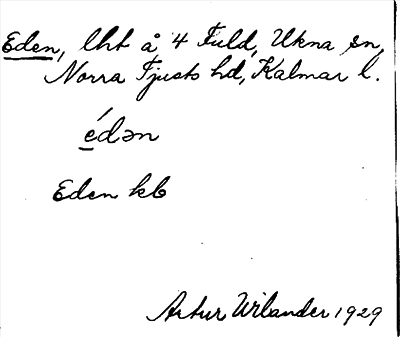 Eden, lht å 4 Fuld, Ukna sn,
Norra Tjusts hd, Kalmar l.
édən
Eden kb
Artur Wilander 1929